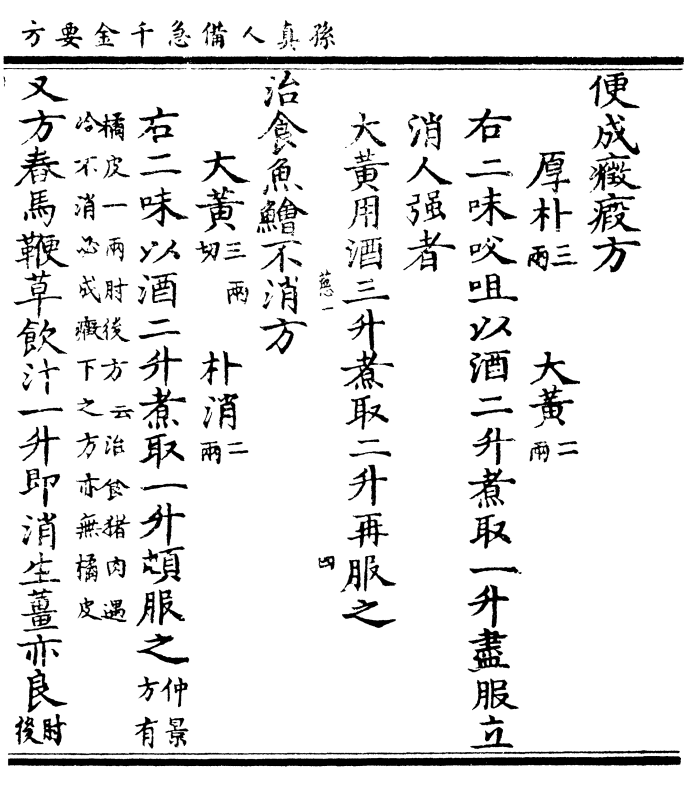 孫真人備急千金要方
便成癥瘕方
厚朴三兩 大黃二兩
右二味㕮咀以酒二升煮取一升盡服立
消人强者
大黃用酒三升煮取二升再服之
治食魚鱠不消方
大黃三兩切 朴消二兩
右二味以酒二升煮取一升頓服之仲景方有
橘皮一兩肘後方云治食猪肉遇
冷不消必成癥下之方亦無橘皮
又方舂馬鞭草飲汁一升即消生薑亦良肘後
葱一
四